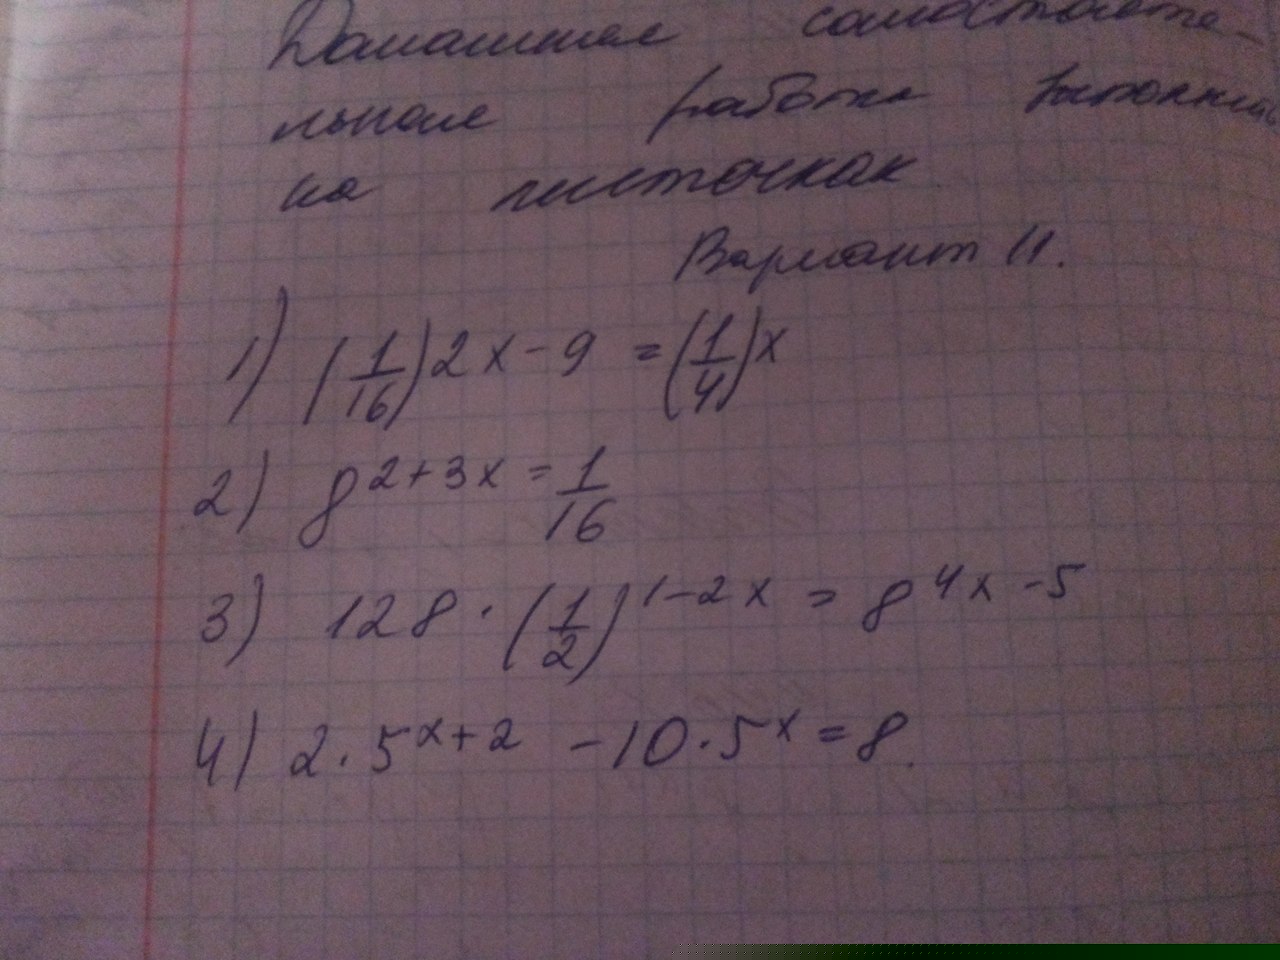 Домашняя самостояте-
льная работа выполнить
на листочках
Вариант 11.
1) (1/16)^2x-9 = (1/4)^x
2) 8^2+3x = 1/16
3) 128 · (1/2)^1-2x = 8^4x-5
4) 2 · 5^x+2 - 10 · 5^x = 8.